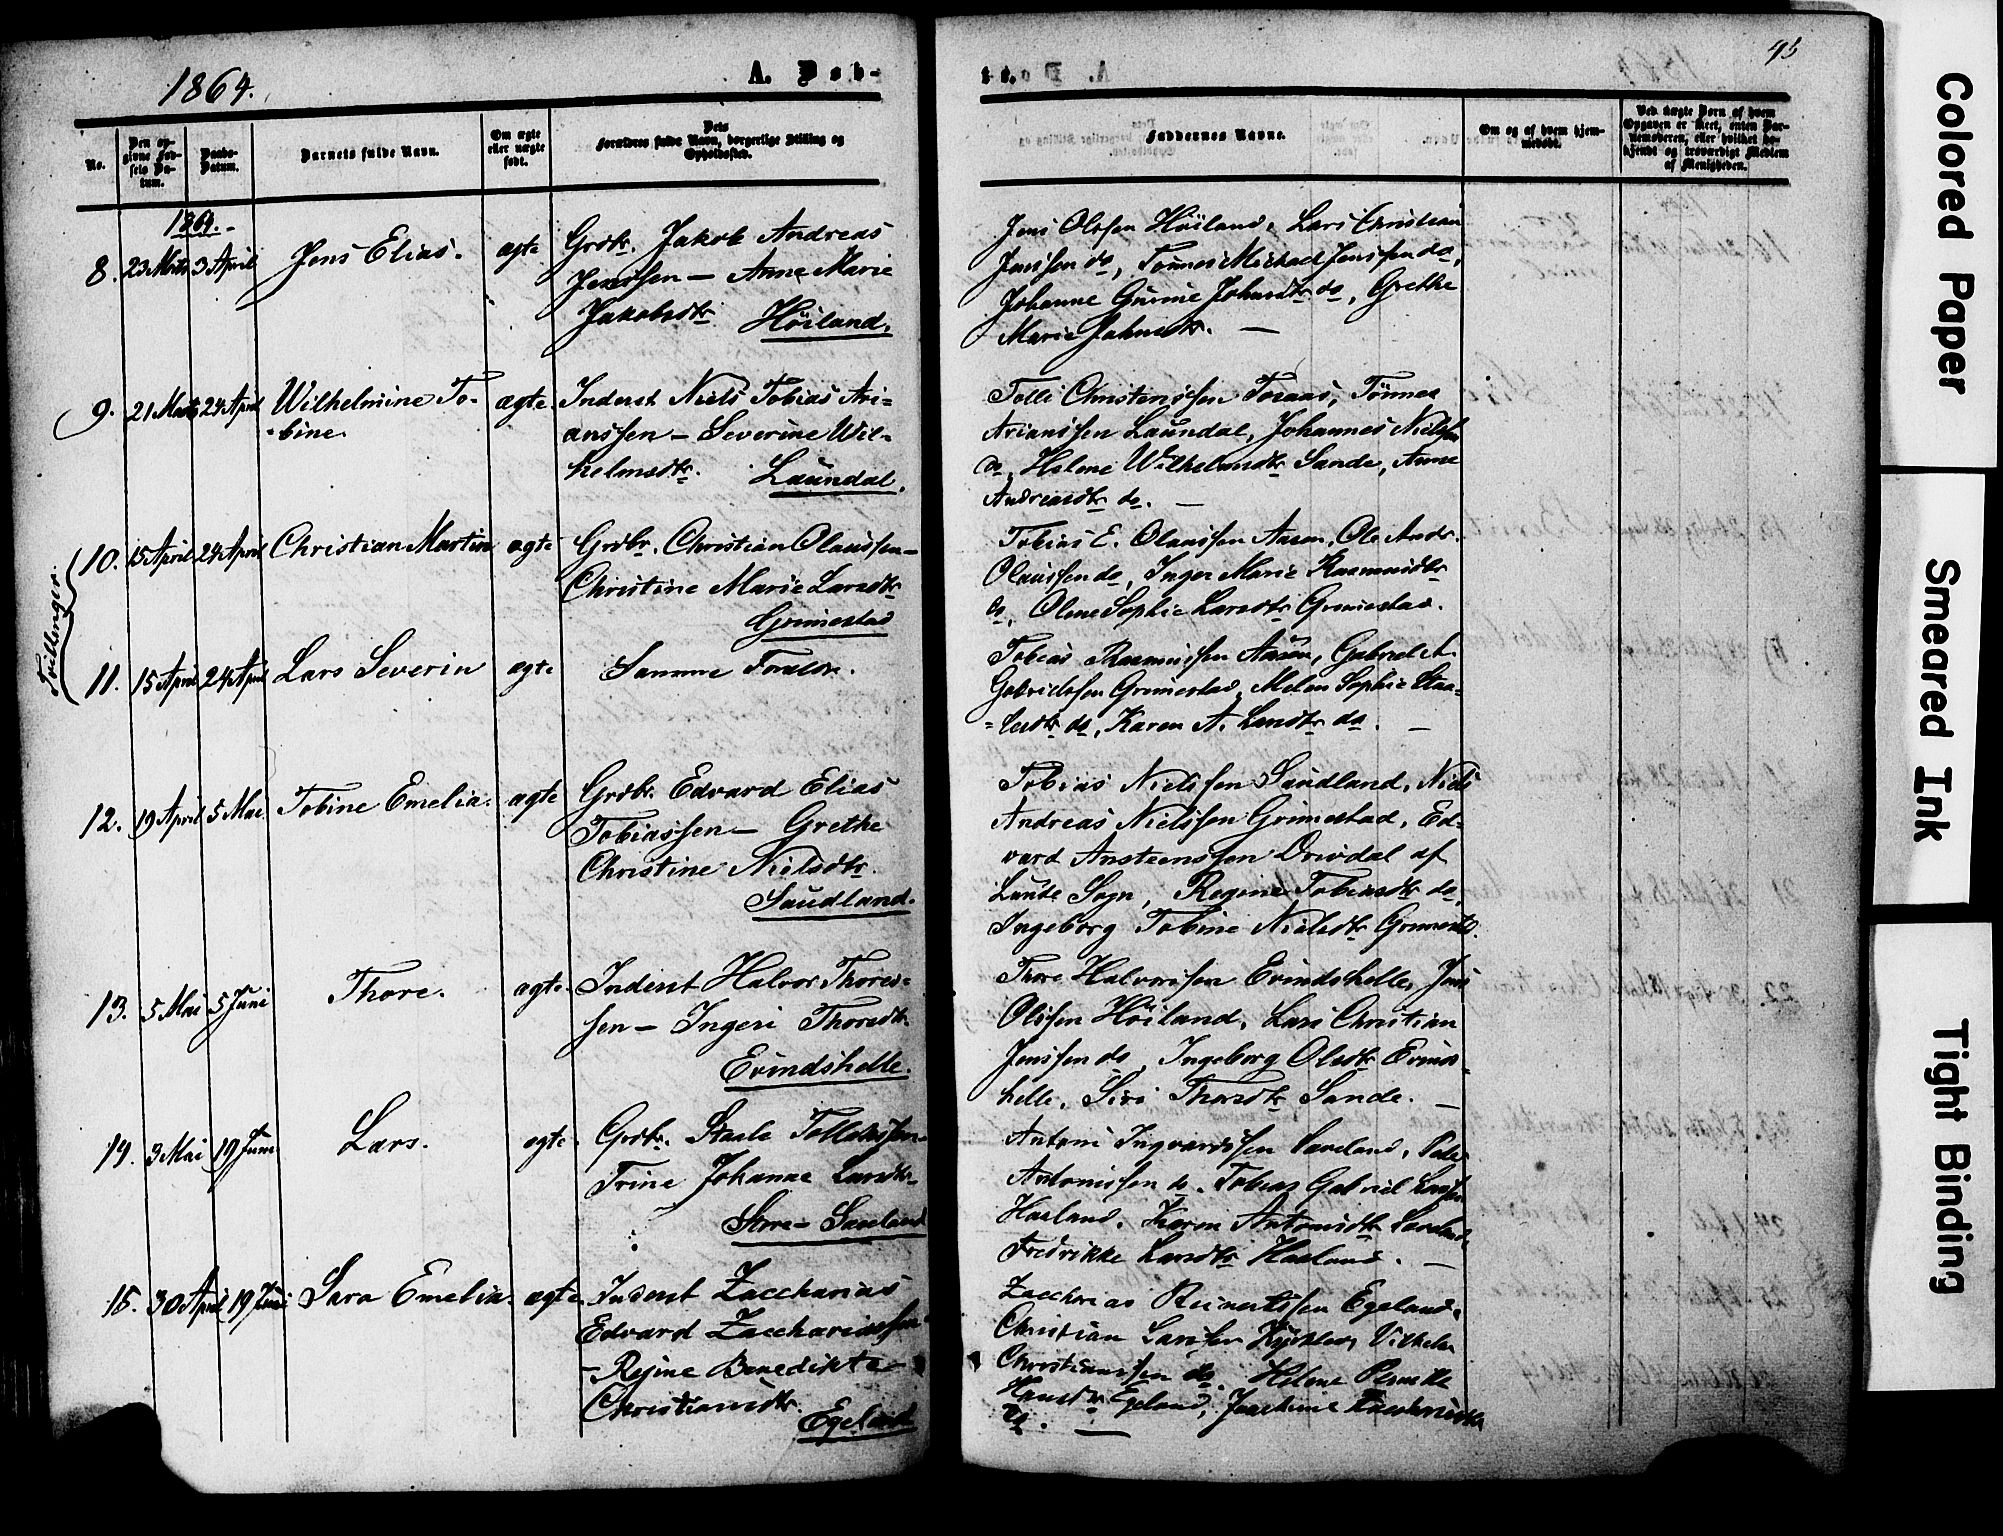 1864.
A. Døb-
No.
Den op-
givne Fød-
sels Da-
tum.
Daabs-
Datum.
Barnets fulde Navn.
Om ægte
eller uægte
født.
Dets
Forældres fulde Navn, borgerlige Stilling og
Opholdssted.
1864.
8. 23 Marts 3 April Jens Elias. ægte Grdbr. Jakob Andreas
Jenssen - Anne Marie
Jakobsdtr Höiland.
9. 21 Marts 24 April Wilhelmine To- ægte. Inderst Niels Tobias Ari-
bine. anssen - Severine Wil-
helmsdtr. Laundal.
Tvillinger.
10. 15 April 24 April Christian Martin ægte Grdbr. Christian Olaussen -
Christine Marie Larsdtr
Grimestad
11. 15 April 24 April Lars Severin ægte Samme Foraldr.
12. 19 April 5 Mai Tobine Emelia. ægte Grdbr. Edvard Elias
Tobiassen - Grethe
Christine Nielsdtr.
Saudland.
13. 5 Mai 5 Juni Thore. ægte. Inderst Halvor Thores-
sen - Ingeri Thoresdtr
Evindshelle.
14. 3 Mai 19 Juni Lars. ægte. Grdbr. Staale Tollakssen -
Trine Johanne Larsdtr
Store-
15. 30 April 19 Juni Sara Emelia. ægte. Inderst Zaccharias
Edvard Zacchariassen
- Rejine Benedikte
Christiansdtr.
Egeland
te.
95
Faddernes Navne.
Om og af hvem hjem-
medøbt.
Ved uægte Børn af hvem
Opgaven er skeet, enten Bar-
nemoderen, eller hvilket be-
kjendt og troværdigt Medlem
af Menigheden.
Jens Olssen Höiland, Lars Christian
Jenssen do, Tönnes Michael Jenssen do,
Johanne Gurine Johnsdtr do, Grethe
Marie Johnsdtr. -
Tolli Christenssen Foraas, Tönnes
Arianssen Laundal, Johannes Nielssen
do, Helene Wilhelmsdtr Sande, Anne
Andreasdtr do. -
Tobias E. Olaussen Aasen, Ole Andr.
Olaussen do, Inger Marie Rasmusdtr
do, Olene Sophie Larsdtr Grimestad.
Tobias Rasmussen Aasen, Gabriel A.
Gabrielssen Grimestad, Melen Sophie Staa-
lesdtr do, Karen A. Larsdtr do. -
Tobias Nielssen Saudland, Niels
Andreas Nielssen Grimestad, Ed-
vard Ansteenssen Drivdal af
Lunde Sogn, Regine Tobiasdtr do,
Ingeborg Tobine Nielsdtr Grimestd.
Thore Halvorssen Evindshelle, Jens
Olssen Höiland, Lars Christian
Jenssen do, Ingeborg Olsdtr Evinds-
helle, Siri Thorsdtr Sande. -
Antoni Ingvardssen
Antonissen do. Tobias Gabriel Larssen
Haaland. Karen Antonisdtr
Fredrikke Larsdtr Haaland. -
Zaccharias Reinertssen Egeland,
Christian Larssen Vilhelm
Christianssen do. Helene Pernille
Hansdtr Egeland, Joachime
do. -
Colored Paper
Smeared Ink
Tight Binding